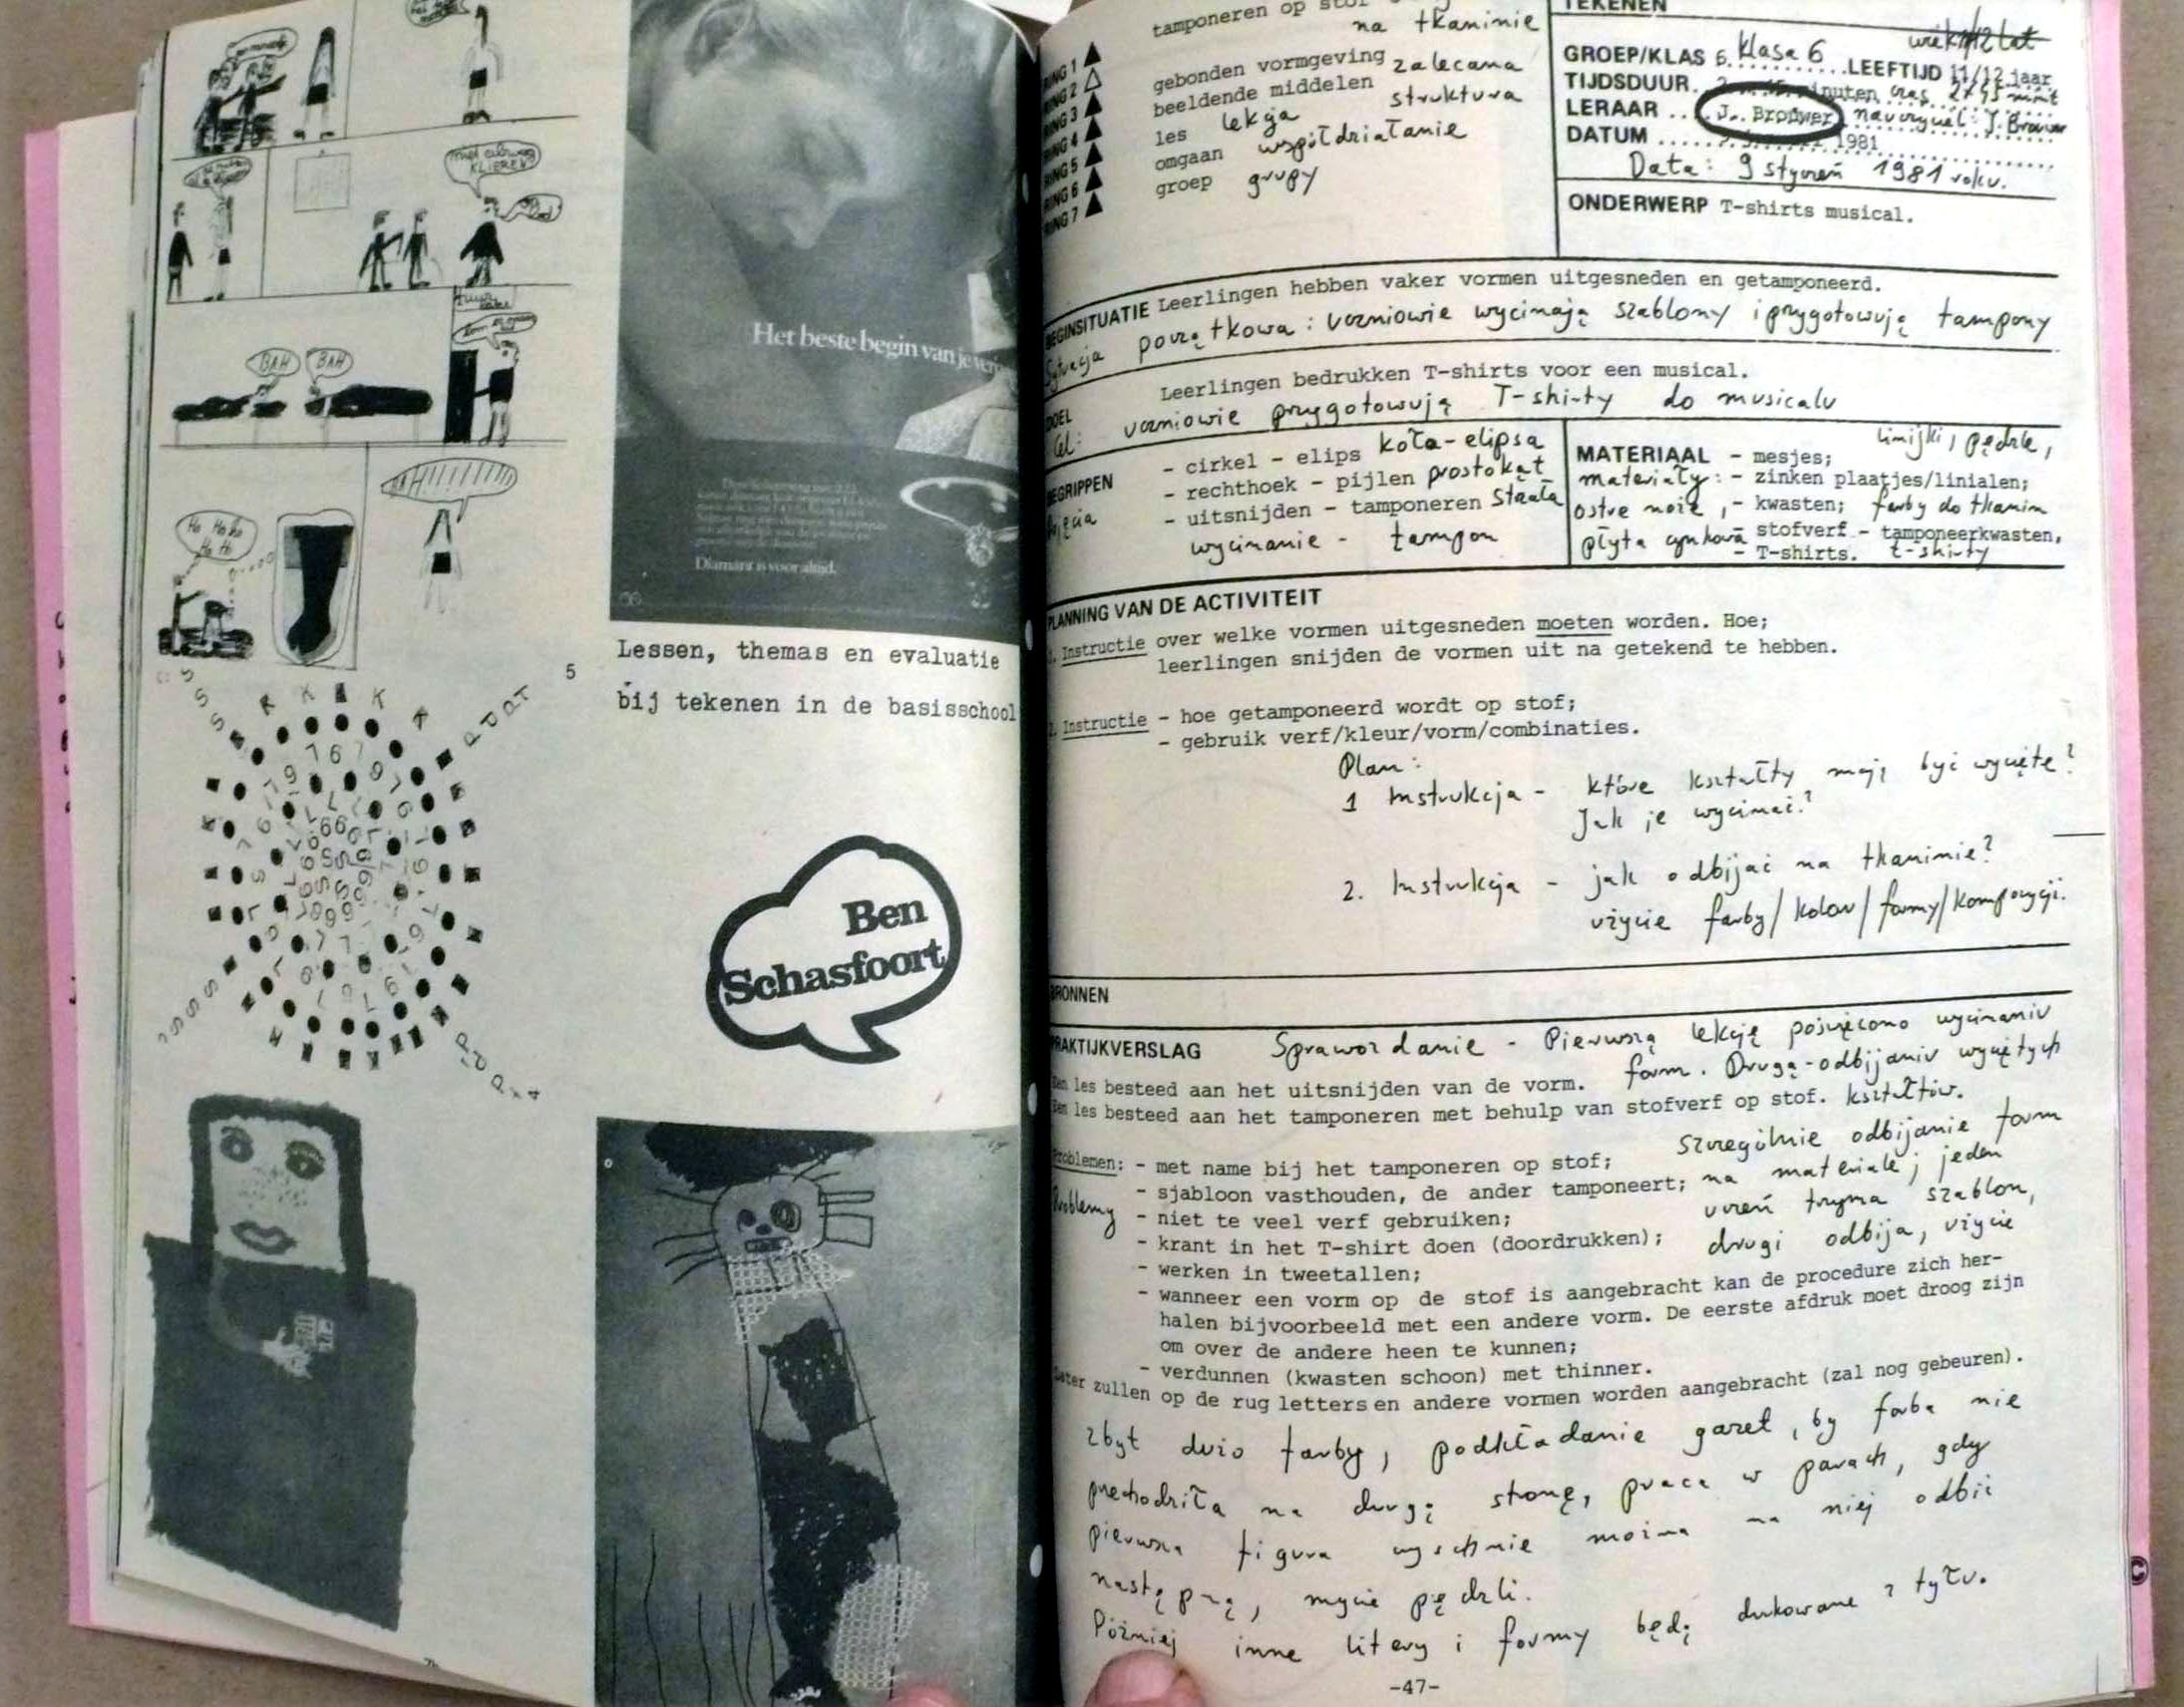 BAH
BAH
Het beste begin van je
Diamant is voor altijd.
5
Lessen, themas en evaluatie
bij tekenen in de basisschool
Ben
Schasfoort
tamponeren op stof
na tkaninie
gebonden vormgeving zalecana
beeldende middelen struktura
les lekcja
omgaan współdziałanie
groep grupy
RING 1
RING 2
RING 3
RING 4
RING 5
RING 6
RING 7
TEKENEN
GROEP/KLAS 6. klasa 6 LEEFTIJD 11/12 jaar
TIJDSDUUR
LERAAR .. J. Brouwer nauczyciel: J. Brouwer
DATUM 1981
Data: 9 styczeń 1981 roku.
ONDERWERP T-shirts musical.
BEGINSITUATIE Leerlingen hebben vaker vormen uitgesneden en getamponeerd.
Sytuacja początkowa: uczniowie wycinają szablony i przygotowują tampony
DOEL Leerlingen bedrukken T-shirts voor een musical.
Cel: uczniowie przygotowują T-shirty do musicalu
BEGRIPPEN
- cirkel - elips koła-elipsa
- rechthoek - pijlen prostokąt
- uitsnijden - tamponeren
wycinanie - tampon
MATERIAAL - mesjes; linijki, pędzle,
materiały: - zinken plaatjes/linialen;
ostre noże, - kwasten; farby do tkanin
płyta cynkowa stofverf - tamponeerkwasten,
- T-shirts. t-shirty
PLANNING VAN DE ACTIVITEIT
1. Instructie over welke vormen uitgesneden moeten worden. Hoe;
leerlingen snijden de vormen uit na getekend te hebben.
2. Instructie - hoe getamponeerd wordt op stof;
- gebruik verf/kleur/vorm/combinaties.
Plan:
1 Instrukcja - które kształty mają być wycięte?
Jak je wycinać?
2. Instrukcja - jak odbijać na tkaninie?
użycie farby/kolor/formy/kompozycji.
BRONNEN
PRAKTIJKVERSLAG Sprawozdanie - Pierwszą lekcję poświęcono wycinaniu
form. Drugą-odbijaniu wyciętych
kształtów.
Een les besteed aan het uitsnijden van de vorm.
Een les besteed aan het tamponeren met behulp van stofverf op stof.
Problemen: - met name bij het tamponeren op stof;
- sjabloon vasthouden, de ander tamponeert;
- niet te veel verf gebruiken;
- krant in het T-shirt doen (doordrukken);
- werken in tweetallen;
- wanneer een vorm op de stof is aangebracht kan de procedure zich her-
halen bijvoorbeeld met een andere vorm. De eerste afdruk moet droog zijn
om over de andere heen te kunnen;
- verdunnen (kwasten schoon) met thinner.
Later zullen op de rug letters en andere vormen worden aangebracht (zal nog gebeuren).
Problemy
Szczególnie odbijanie form
na materiale; jeden
uczeń trzyma szablon,
drugi odbija, użycie
zbyt dużo farby, podkładanie gazet, by farba nie
przechodziła na drugą stronę, praca w parach, gdy
pierwsza figura wyschnie można na niej odbić
następną, mycie pędzli.
Później inne litery i formy będą drukowane z tyłu.
-47-